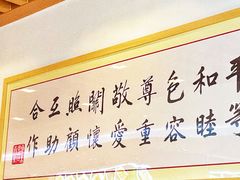 平等
和睦
包容
尊重
敬愛
關懷
照顧
互助
合作